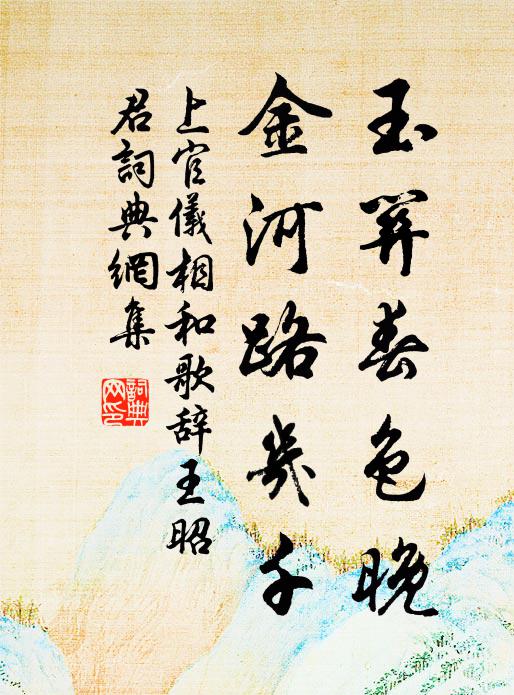 玉關春色晚
金河路幾千
上官儀相和歌辞王昭
君詞典網集
詞典
网印